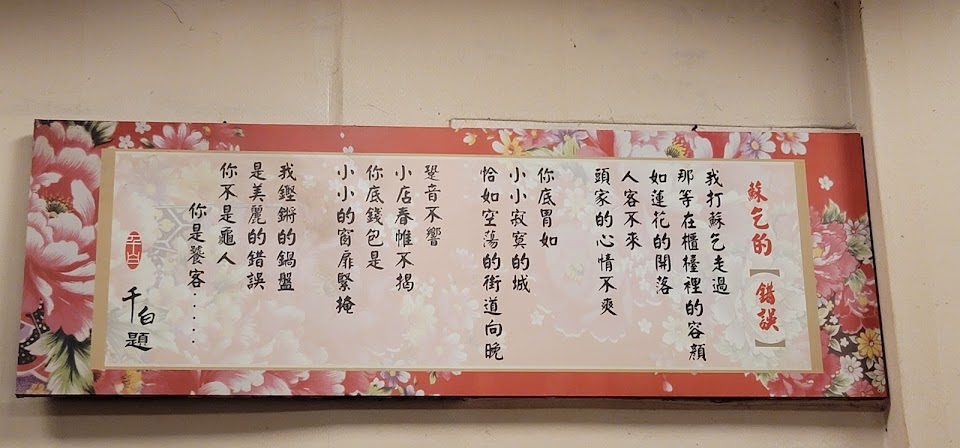 蘇乞的【錯誤】
我打蘇乞走過
那等在櫃檯裡的容顏
如蓮花的開落
人客不來
頭家的心情不爽
你底胃如
小小寂寞的城
恰如空蕩的街道向晚
跫音不響
小店春帷不揭
你底錢包是
小小的窗扉緊掩
我鏗鏘的鍋盤
是美麗的錯誤
你不是龜人
你是饕客......
千白題
千白